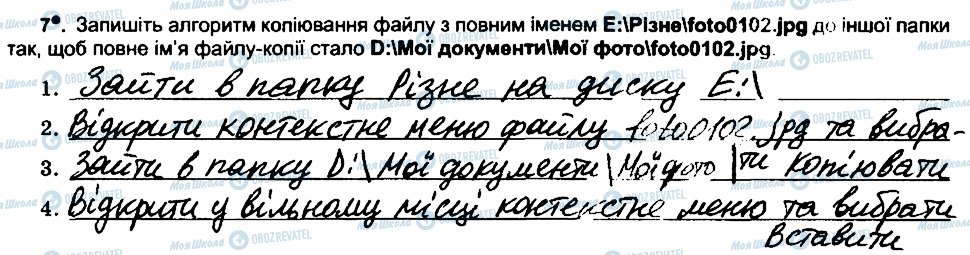 7°. Запишіть алгоритм копіювання файлу з повним іменем E:\Різне\foto0102.jpg до іншої папки
так, щоб повне ім'я файлу-копії стало D:\Мої документи\Мої фото\foto0102.jpg.
1. Зайти в папку Різне на диску E:\
2. Відкрити контекстне меню файлу foto0102.jpg та вибра-
3. Зайти в папку D:\Мої документи\Мої фото |ти копіювати
4. Відкрити у вільному місці контекстне меню та вибрати
Вставити